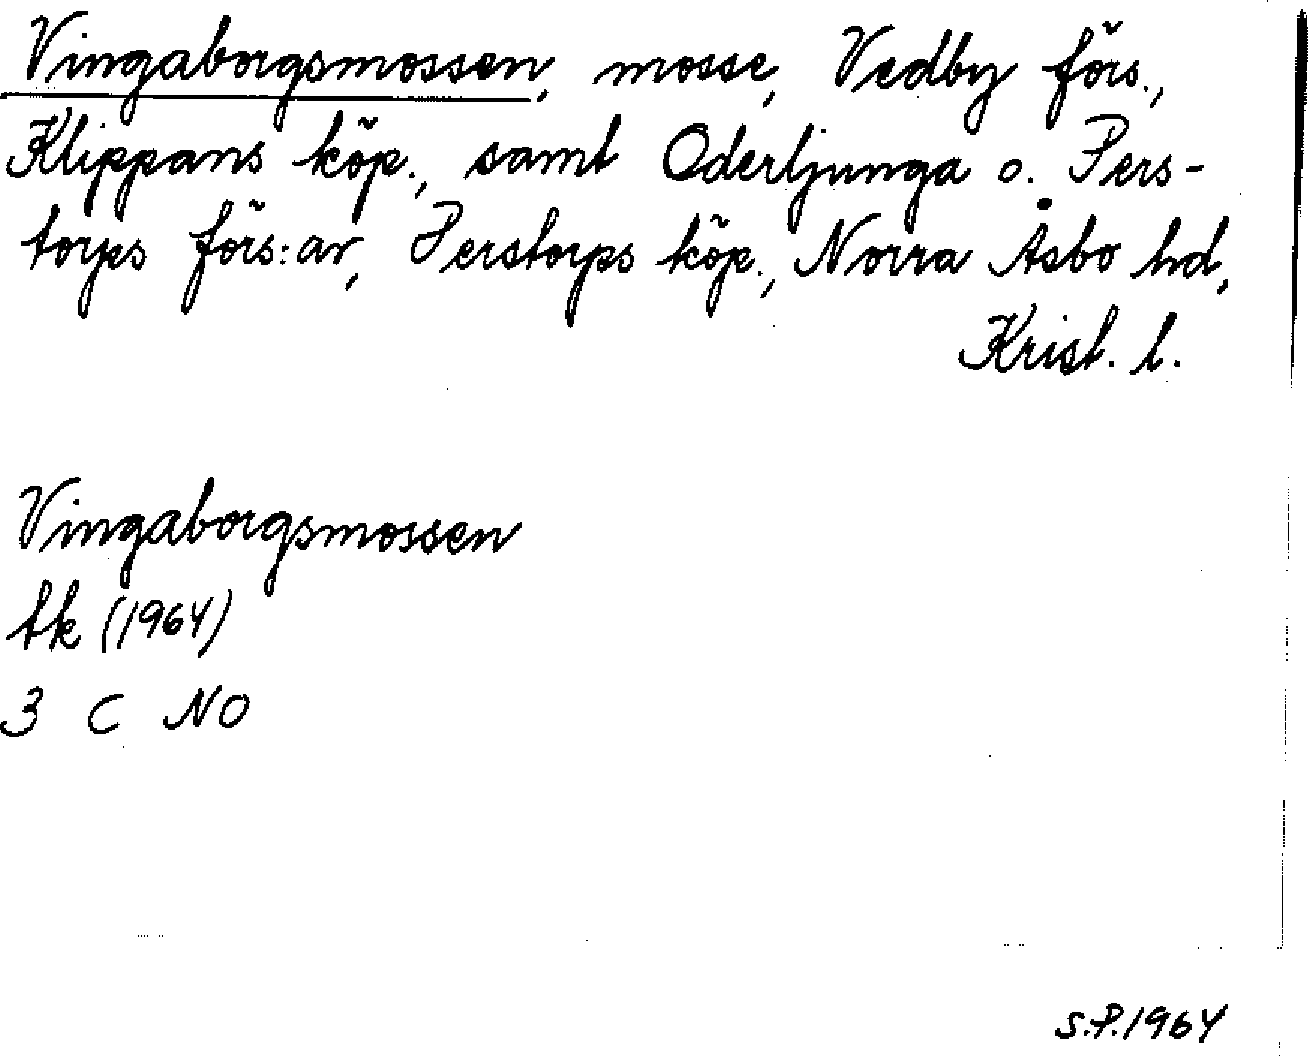 Vingaborgsmossen, mosse, Vedby förs.,
Klippans köp., samt Oderljunga o. Pers-
torps förs:ar, Perstorps köp., Norra Åsbo hd,
Krist. l.
Vingaborgsmossen
tk (1964)
3 C NO
S.P. 1964